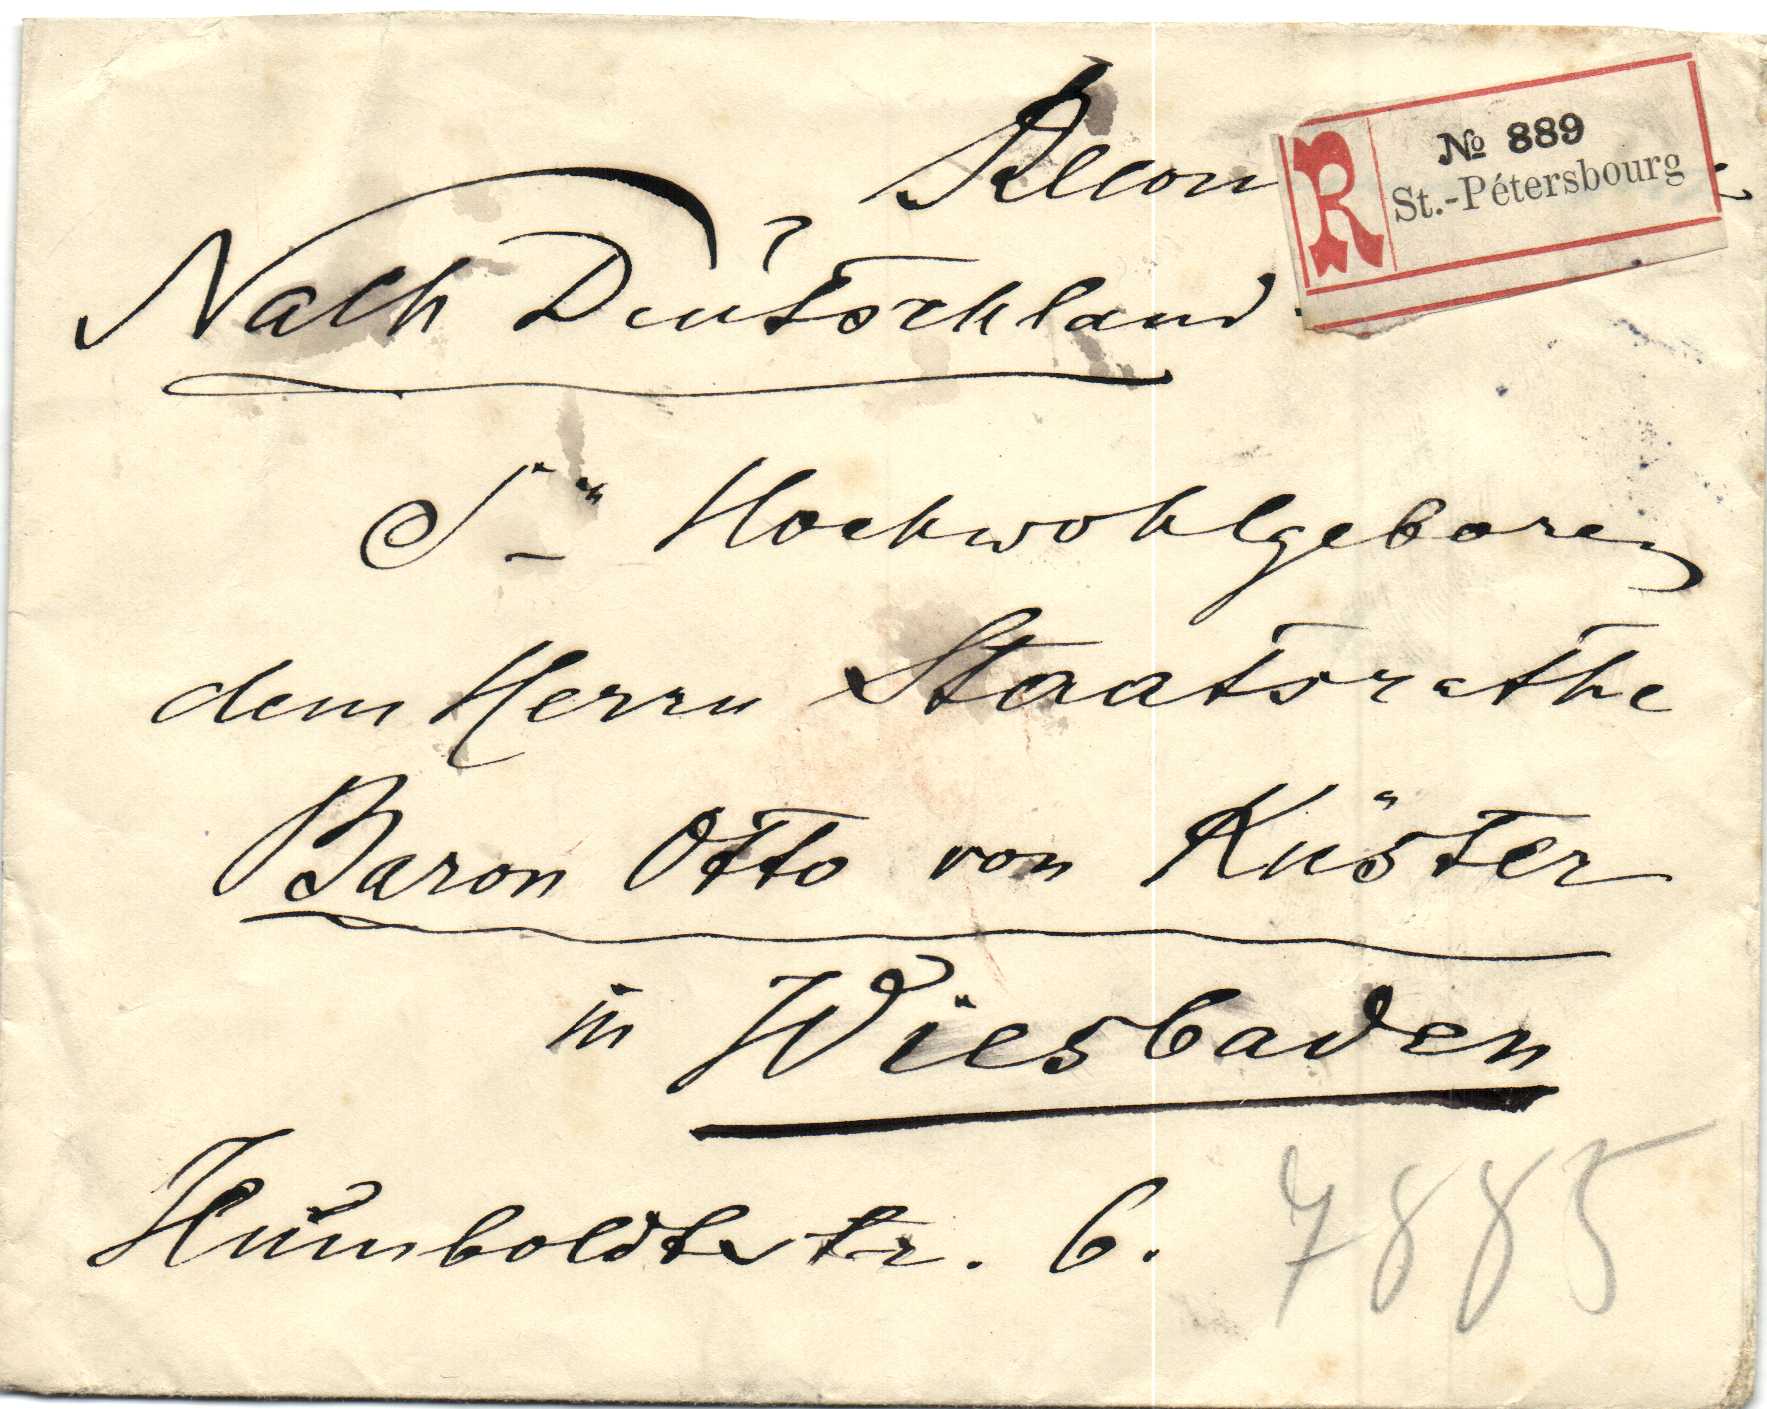 Recom
R № 889
St.-Pétersbourg
Nach Deutschland.
Sr Hochwohlgeboren
dem Herrn Staatsrathe
Baron Otto von Küster
in Wiesbaden
Humboldtstr. 6.
7885